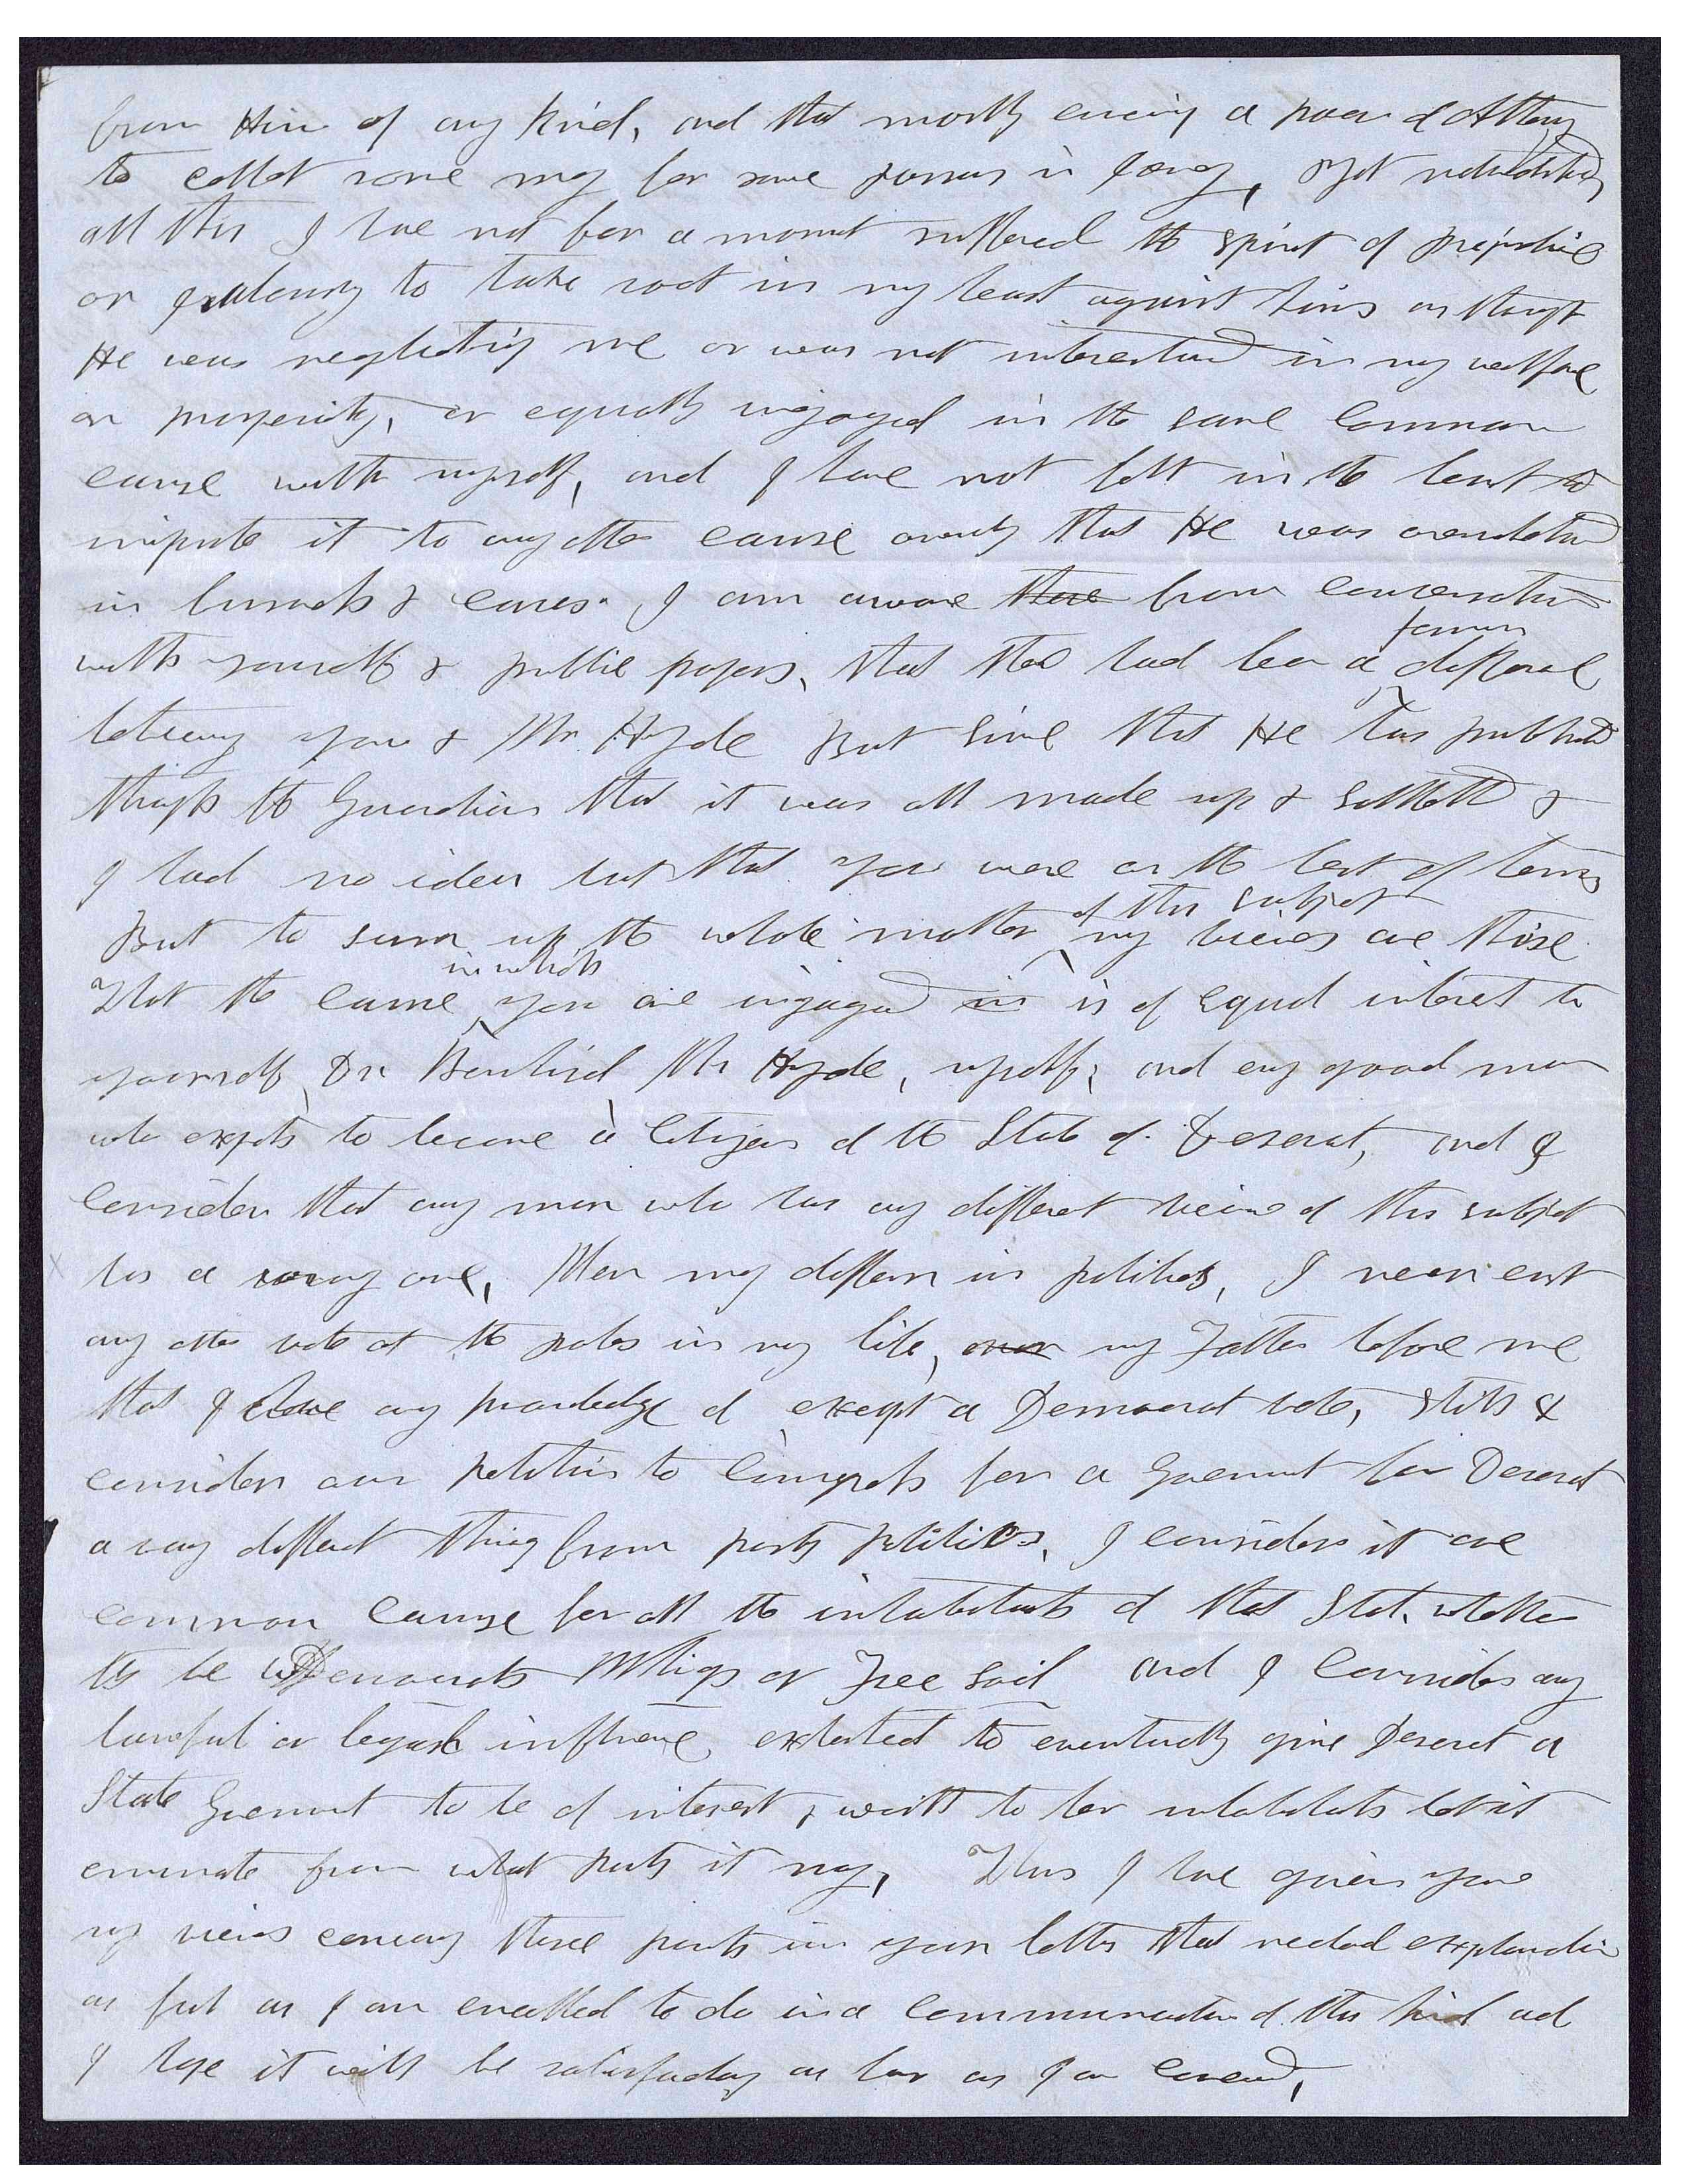 from Him of any kind, and that mostly covering a power of Attorny
to collet some money for some person in Iowa, Yet notwithstanding
all this I have not for a moment suffered the spirit of prejudice
or jealousy to take root in my heart against him as though
He was neglecting me or was not interested in my welfare
or prosperity, or equally ingaged in the same Common
cause with myself, and I have not felt in the least to
impute it to any other cause ownly that He was overwhelmed
in buisness & cares. I am aware there from conversation
with yourself & public papers, that there had been a former difference
between you & Mr Hyde But since that He has published
through the Guardian that it was all made up & settled &
I had no idea but that you were on the best of terms
But to sum up the whole matter of this subject my views are these
That the cause in which you are ingaged in is of equal interest to
yourself, Dr Bernhisel Mr Hyde, myself, and evry good man
who expects to become a Citizen of the State of Deseret, and I
Consider that any man who has any different view of this subject
has a wrong one, Men may differ in politicks, I never cast
any other vote at the poles in my life, nor my Father before me
that I have any knowledge of except a Democrat vote, still I
consider our petition to Congress for a Government for Deseret
a very different thing from party politics, I consider it one
common cause for all the inhabitants of that State whether
they be Democrats Whigs or Free Soil and I Consider any
lawful or legal influence exherted to eventually give Deseret a
State Government to be of interest & worth to her inhabitants let it
emenate from what party it may, Thus I have given you
my views concerning those points in your letter that needed explanation
as full as I am enabled to do in a Communication of this kind and
I hope it will be satisfactory as far as I am concernd,